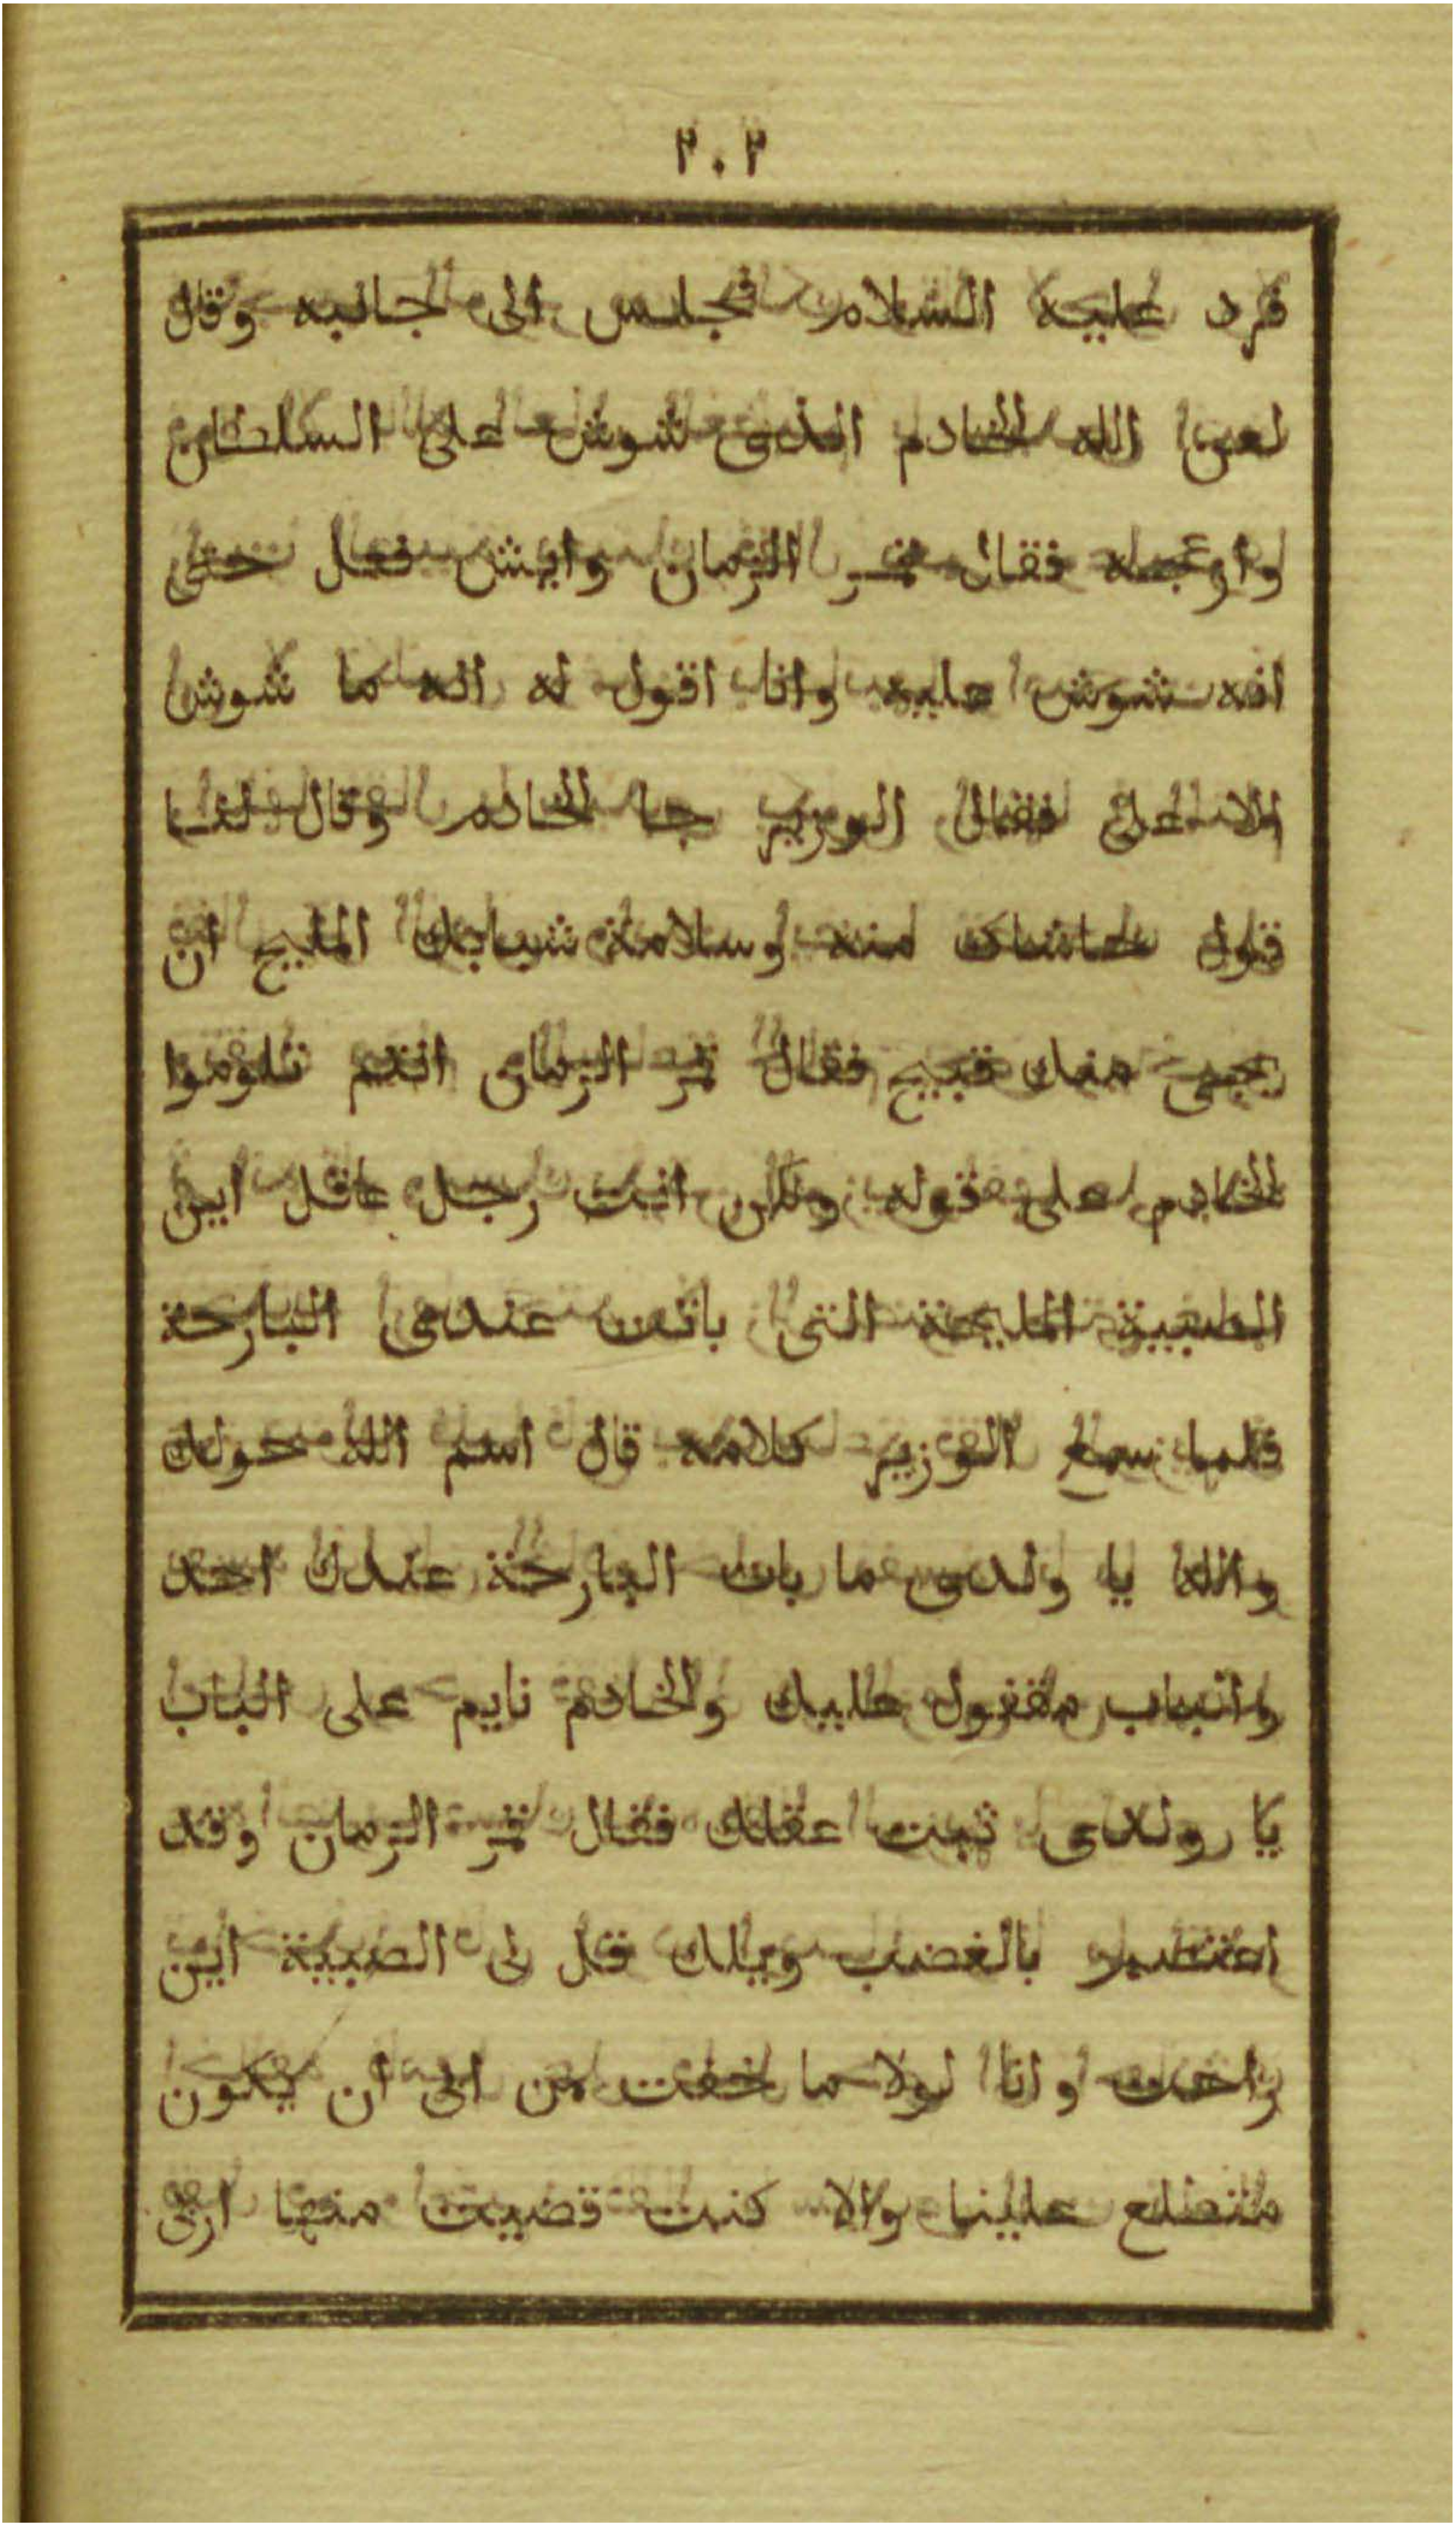 ٢٠٢
فرد عليه السلام فجلس الى جانبه وقال
لعن الله الخادم الذى شوش على السلطان
وازعجه فقال قمر الزمان وايش فعل حتى
انه شوش عليه وانا اقول له انه ما شوش
الا على فقال الوزير جا الخادم وقال لنا
قول حاشاك منه وسلامة شبابك المليح ان
يجى منك قبيح فقال قمر الزمان انتم تلوموا
الخادم على قوله ولكن انت رجل عاقل اين
الصبية المليحة التى باتت عندى البارحة
فلما سمع الوزير كلامه قال اسم الله حولك
والله يا ولدى ما بات البارحة عندك احد
والباب مقفول عليك والخادم نايم على الباب
يا ولدى ثبت عقلك فقال قمر الزمان وقد
بالغضب ويلك قل لى الصبية اين
راحت وانا لولا ما خفت من ابى ان يكون
متطلع علينا والا كنت قضيت منها اربى